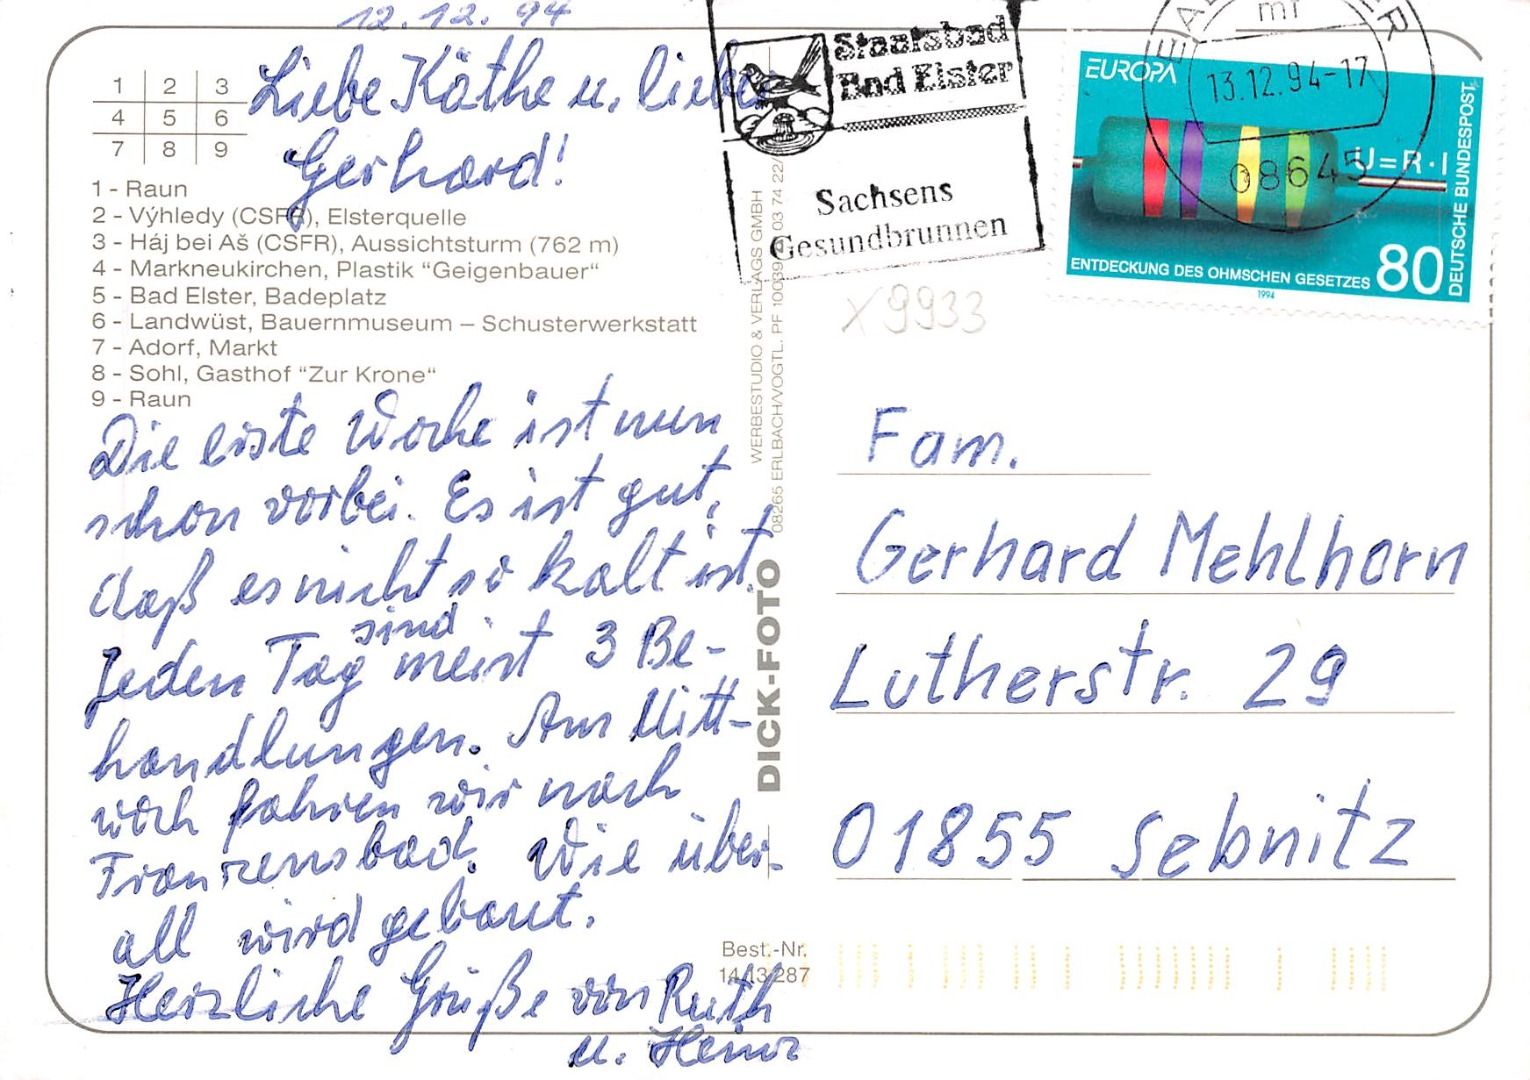 12.12.94
Liebe Käthe u. liebe
Gerhard!
1 2 3
4 5 6
7 8 9
1 - Raun
2 - Výhledy (CSFR), Elsterquelle
3 - Háj bei Aš (CSFR), Aussichtsturm (762 m)
4 - Markneukirchen, Plastik “Geigenbauer“
5 - Bad Elster, Badeplatz
6 - Landwüst, Bauernmuseum – Schusterwerkstatt
7 - Adorf, Markt
8 - Sohl, Gasthof “Zur Krone“
9 - Raun
Die erste Woche ist nun
schon vorbei. Es ist gut,
daß es nicht so kalt ist.
Jeden Tag sind meist 3 Be-
handlungen. Am Mitt-
woch fahren wir nach
Franzensbad. Wie über-
all wird gebaut.
Herzliche Grüße von Ruth
u. Heinz
WERBESTUDIO & VERLAGS GMBH
08265 ERLBACH/VOGTL. PF 10039 03 74 22/
DICK-FOTO
Best.-Nr.
14 13 287
Staatsbad
Bad Elster
Sachsens
Gesundbrunnen
13.12.94-17
08645
EUROPA
U=R·I
ENTDECKUNG DES OHMSCHEN GESETZES 80
DEUTSCHE BUNDESPOST
1994
x9933
Fam.
Gerhard Mehlhorn
Lutherstr. 29
01855 Sebnitz